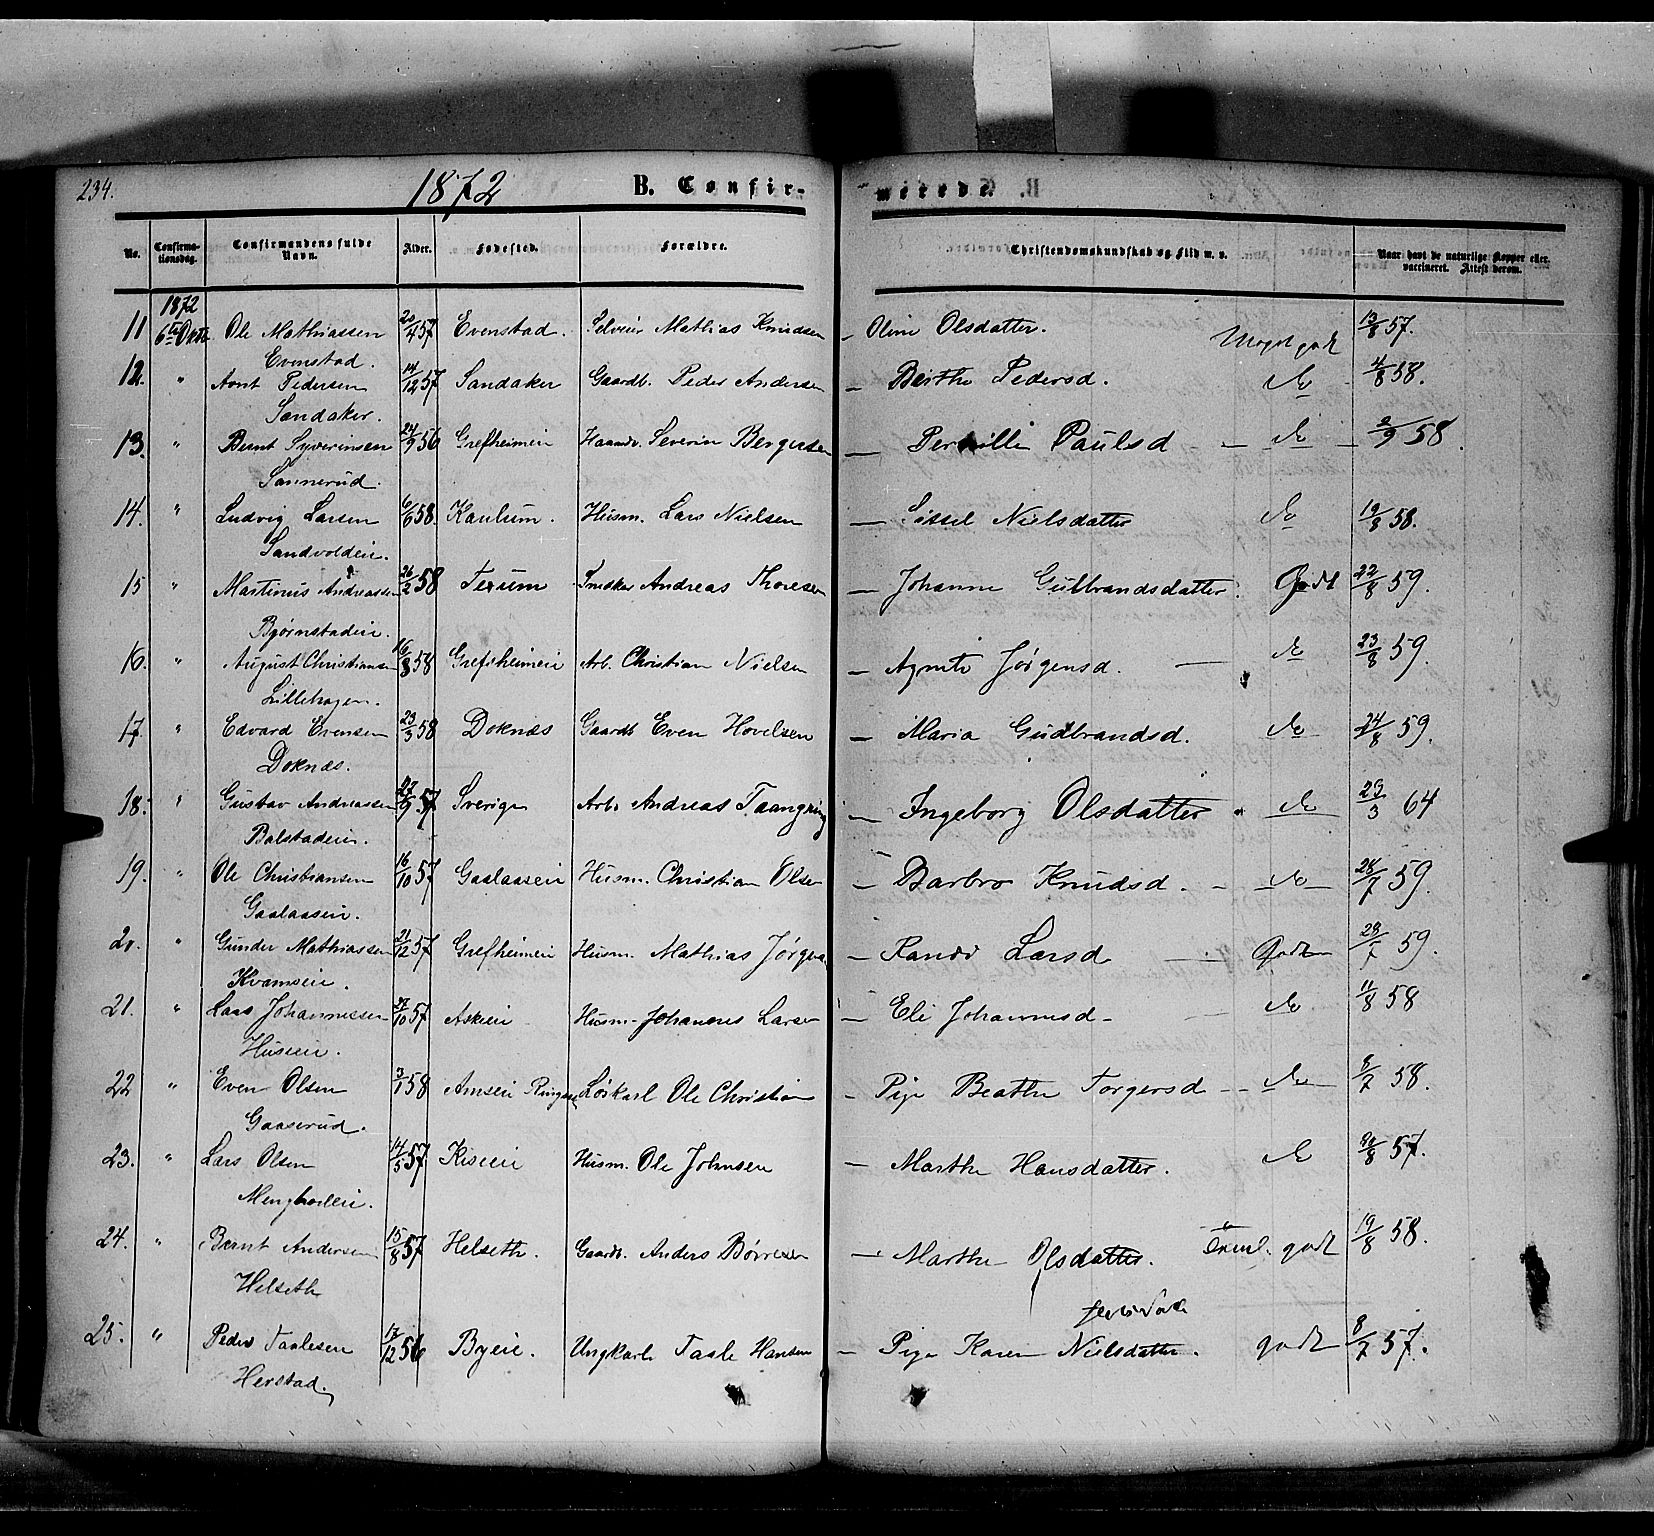 234. 1872 B. Confir- merede.
No. Confirma-tionsdag. Confirmandens fulde Navn. Alder. Fødested. Forældre. Christendomskundskab og Flid m. v. Naar havt de naturlige Kopper eller vaccineret. Attest derom.
1872
11 6te Octr Ole Mathiassen 20/4 57 Evenstad. Selveier Mathias Knudsen – Oline Olsdatter. Meget godt 13/8 57.
Evenstad.
12. " Arnt Pedersen 14/12 57 Sandaker Gaardb. Peder Andersen – Berthe Pedersd. do 4/8 58.
Sandaker.
13. " Bernt Syverinsen 24/9 56 Grefsheimeie Haandv. Severin Bergersen – Pernille Paulsd – do – 2/9 58.
Sannerud.
14. " Ludvig Larsen 6/6 58. Kaulum. Husm. Lars Nielsen – Sissel Nielsdatter do 19/8 58.
Sandvoldeie.
15 " Martinus Andreassen 26/2 58 Terum Snedker Andreas Thoresen – Johanne Gulbrandsdatter. Godt 22/8 59.
Bjørnstadeie.
16. " August Christiansen 16/8 58 Grefsheimeie Arb. Christian Nielsen – Agnete Jørgensd. – do 23/8 59.
Lillehagen.
17. " Edvard Evensen 23/3 58 Doknæs Gaardb Even Hovelsen – Maria Gudbrandsd. do 24/8 59.
Doknæs.
18. " Gustav Andreassen 27/9 57 Sverige Arb. Andreas – Ingeborg Olsdatter do 23/3 64
Balstadeie.
19. " Ole Christiansen 16/10 57 Gaalaaseie Husm. Christian Olsen – Barbro Knudsd. – do 28/7 59.
Gaalaaseie.
20. " Gunder Mathiassen 21/12 57 Grefsheimeie Husm. Mathias Jørgens – Randi Larsd – Godt 28/7 59.
Kvamseie.
21. " Lars Johannessen 27/10 57 Askeie Husm. Johannes Larsen – Eli Johannesd – do 11/8 58
Huseeie.
22 " Even Olsen 3/1 58 Amseie Ringsa Løskarl Ole Christian – Pige Beathe Torgersd – do 8/7 58.
Gaaserud.
23. " Lars Olsen 14/5 57 Kiseeie Husm. Ole Johnsen – Marthe Hansdatter. do 20/8 57.
24. " Bernt Andersen 15/8 57 Helseth. Gaardb. Anders Børresen – Marthe Olsdatter. godt 19/8 58.
Helseth
25. " Peder Taalesen 17/12 56 Byeie. Ungkarl Taale Hansen – Pige Karen Nielsdatter. godt 8/7 57.
Herstad.